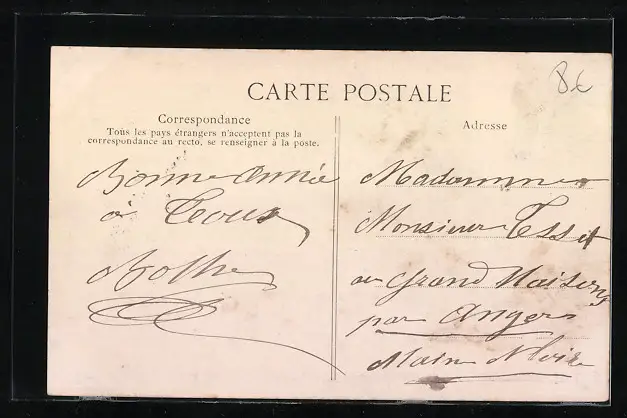 8€
CARTE POSTALE
Correspondance
Tous les pays étrangers n'acceptent pas la
correspondance au recto, se renseigner à la poste.
Bonne Année
à Tous
Adresse
Madamme
Monsieur
au Grand
par Angers